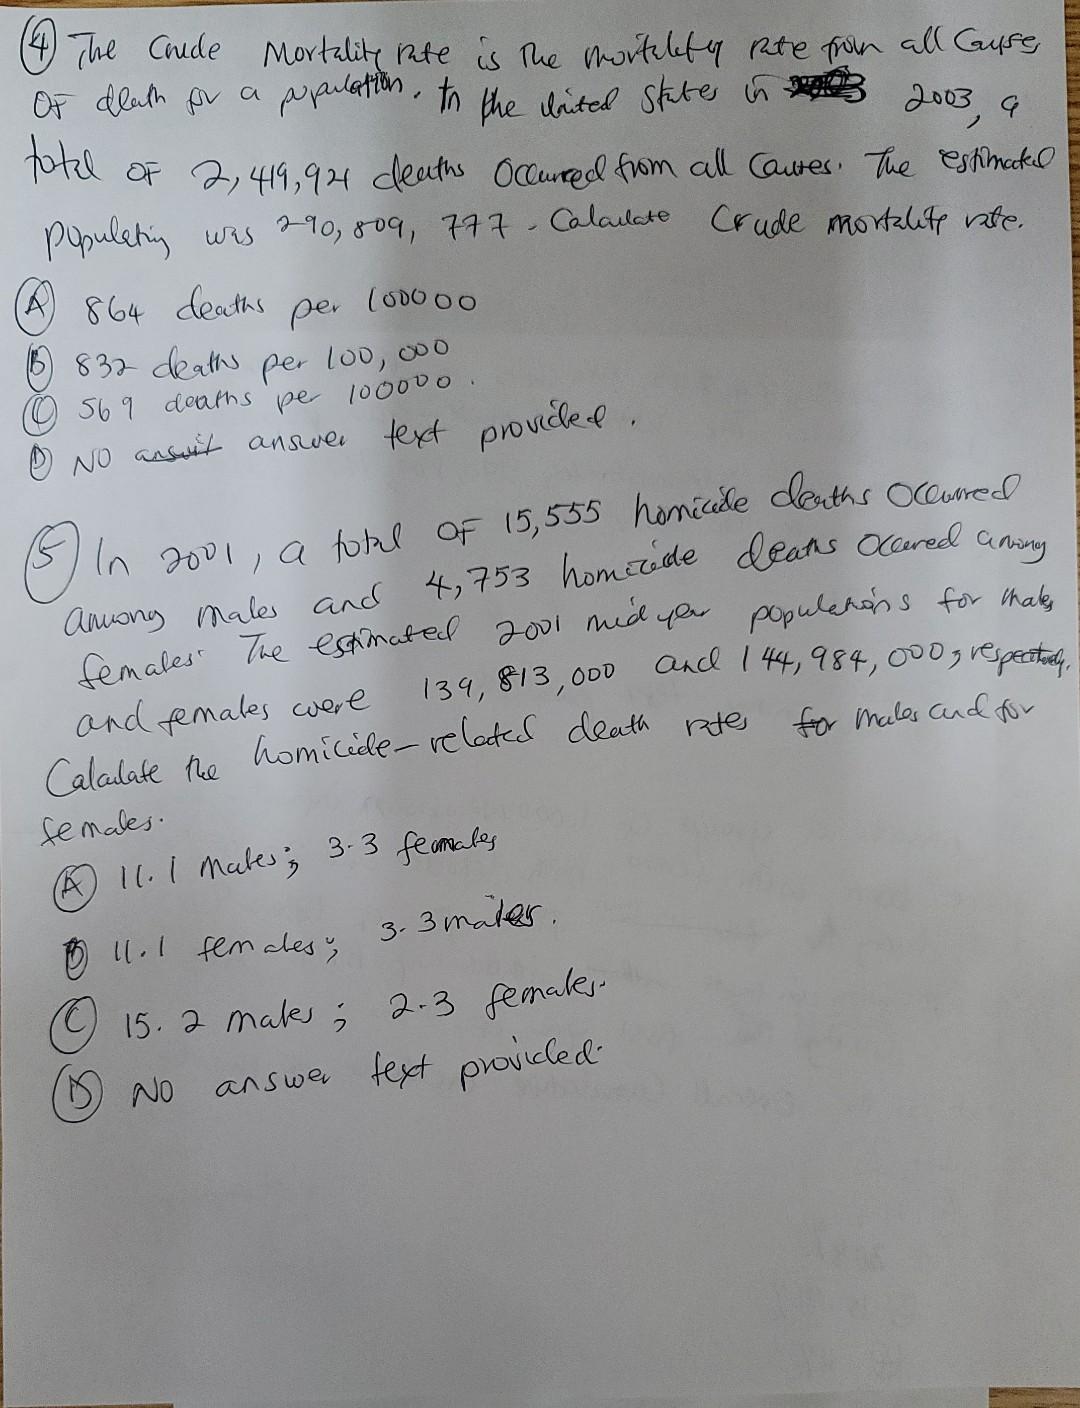 ④ The Crude Mortality rate is the mortality rate from all Cause
OF death for a population. In the United States in 2003, a
total OF 2,419,921 deaths Occurred from all Causes. The estimated
population was 290,809,777. Calculate Crude mortality rate.
Ⓐ 864 deaths per 100000
Ⓑ 832 deaths per 100,000
Ⓒ 569 deaths per 100000.
Ⓓ NO answer text provided.
⑤ In 2001, a total OF 15,555 homicide deaths Occurred
among males and 4,753 homicide deaths Occured among
females. The estimated 2001 midyear populations for males
and females were 139,813,000 and 144,984,000, respectively.
Calculate the homicide-related death rates for males and for
females.
Ⓐ 11.1 Males; 3.3 females
Ⓑ 11.1 females; 3.3 males.
Ⓒ 15.2 males; 2.3 females.
Ⓓ NO answer text provided.